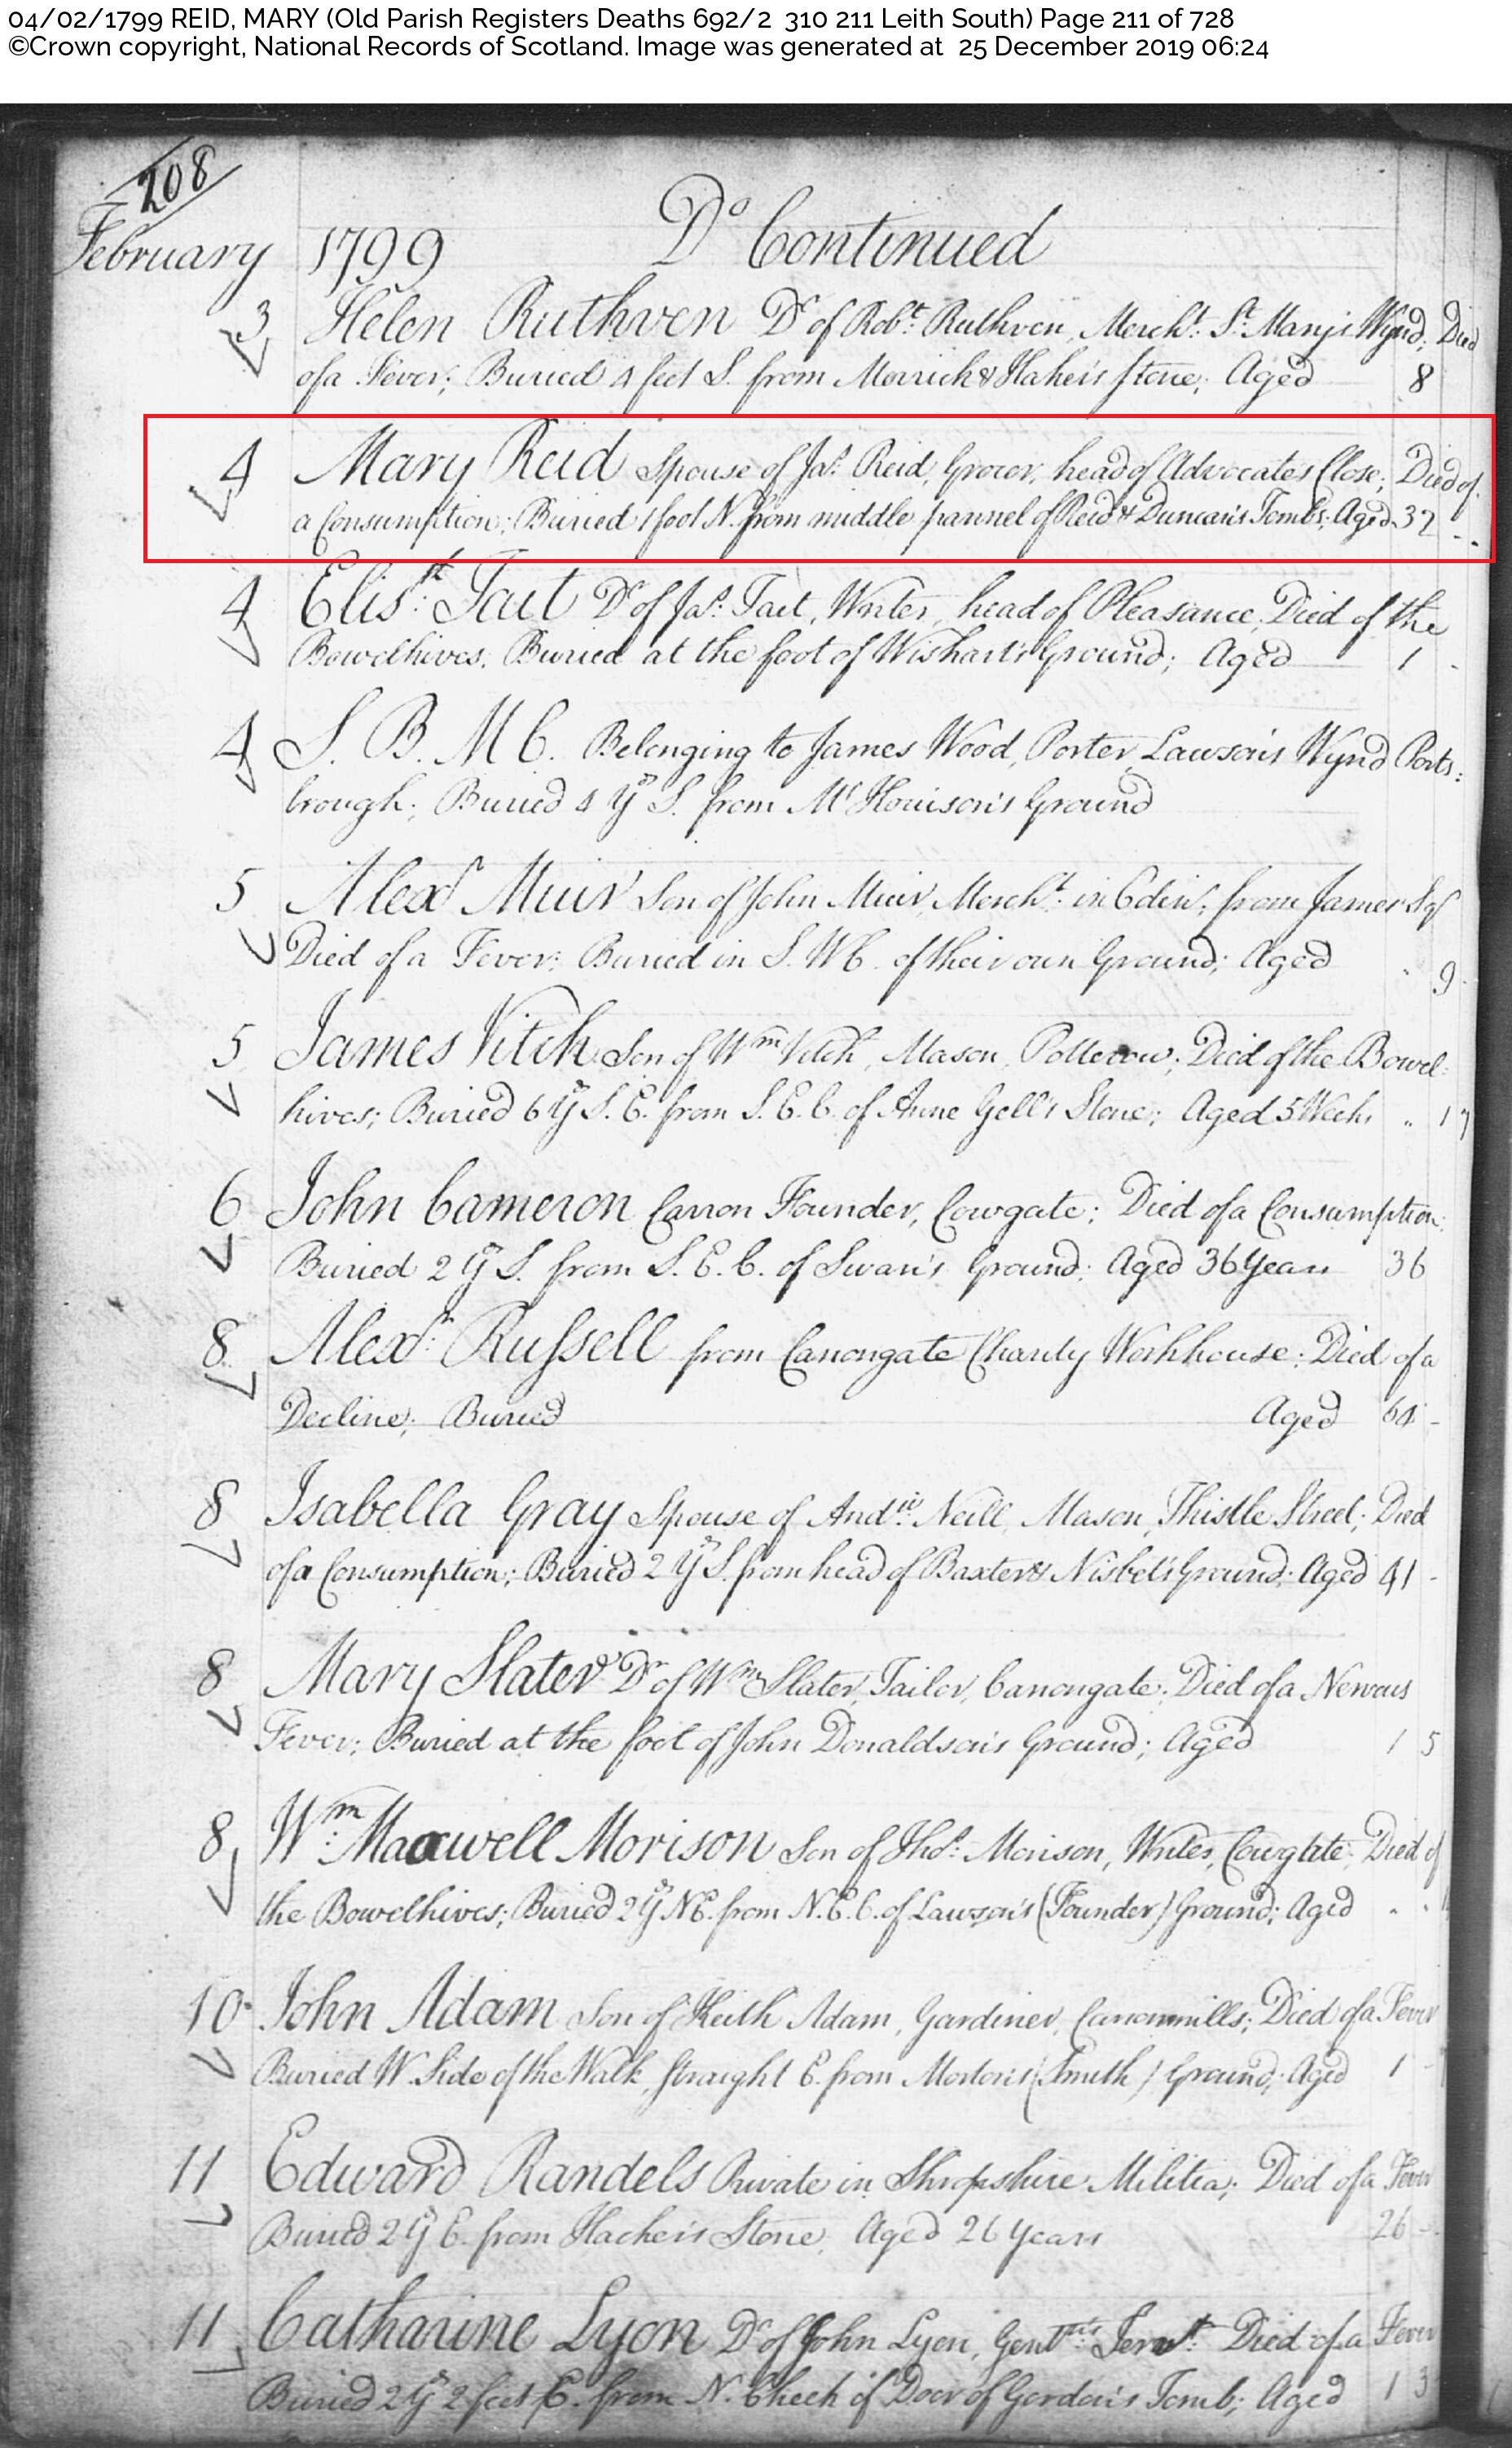 04/02/1799 REID, MARY (Old Parish Registers Deaths 692/2 310 211 Leith South) Page 211 of 728
©Crown copyright, National Records of Scotland. Image was generated at 25 December 2019 06:24
208
February 1799 Do Continued
3 Helen Ruthven Dr of Robt. Ruthven, Mercht. St. Mary's Wynd; Died
of a Fever; Buried 4 feet S. from Stone; Aged 8
4 Mary Reid Spouse of Jas. Reid, Grocer, head of Advocates Close; Died of
a Consumption; Buried 1 foot N. from middle pannel of Reid & Duncan's Tombs; Aged 32
4 Elist: Tait Dr of Jas. Tait, Writer, head of Pleasance; Died of the
Bowelhives; Buried at the foot of Wishart's Ground; Aged 1
4 S. B. M C. Belonging to James Wood, Porter, Lawson's Wynd Ports:
brough; Buried 4 Yds S. from Mr Howison's Ground
5 Alexr Muir Son of John Muir, Mercht. in Edinr; from James's Sqr
Died of a Fever; Buried in S. W C. of their own Ground; Aged 9
5 James Vitch Son of Wm Vitch, Mason, Potterow; Died of the Bowel:
hives; Buried 6 Yds S. E. from S. E. C. of Anne Gell's Stone; Aged 5 Weeks
6 John Cameron Carron Founder, Cowgate; Died of a Consumption;
Buried 2 Yds S. from S. E. C. of Swan's Ground; Aged 36 Years 36
8 Alexr. Russell from Canongate Charity Workhouse; Died of a
Decline; Buried Aged 64
8 Isabella Gray Spouse of Andw. Neill, Mason, Thistle Street; Died
of a Consumption; Buried 2 Yds S. from head of Baxter & Nisbet's Ground; Aged 41
8 Mary Slater Dr of Wm Slater, Tailor, Canongate; Died of a Nervous
Fever; Buried at the foot of John Donaldson's Ground; Aged 1 5
8 Wm: Maxwell Morison Son of Thos. Morison, Writer, Cowgate; Died of
the Bowelhives; Buried 2 Yds N E. from N. E. C. of Lawson's (Founder) Ground; Aged
10 John Adam Son of Keith Adam, Gardiner, Canonmills; Died of a Fever
Buried W. Side of the Walk, straight E. from Morton's (Smith) Ground; Aged 1
11 Edward Randels Private in Shropshire Militia; Died of a Fever
Buried 2 Yds E. from Stone; Aged 26 Years 26
11 Catharine Lyon Dr of John Lyon, Servt. Died of a Fever
Buried 2 Yds 2 feet E. from N. Cheek of Door of Gordon's Tomb; Aged 1 3